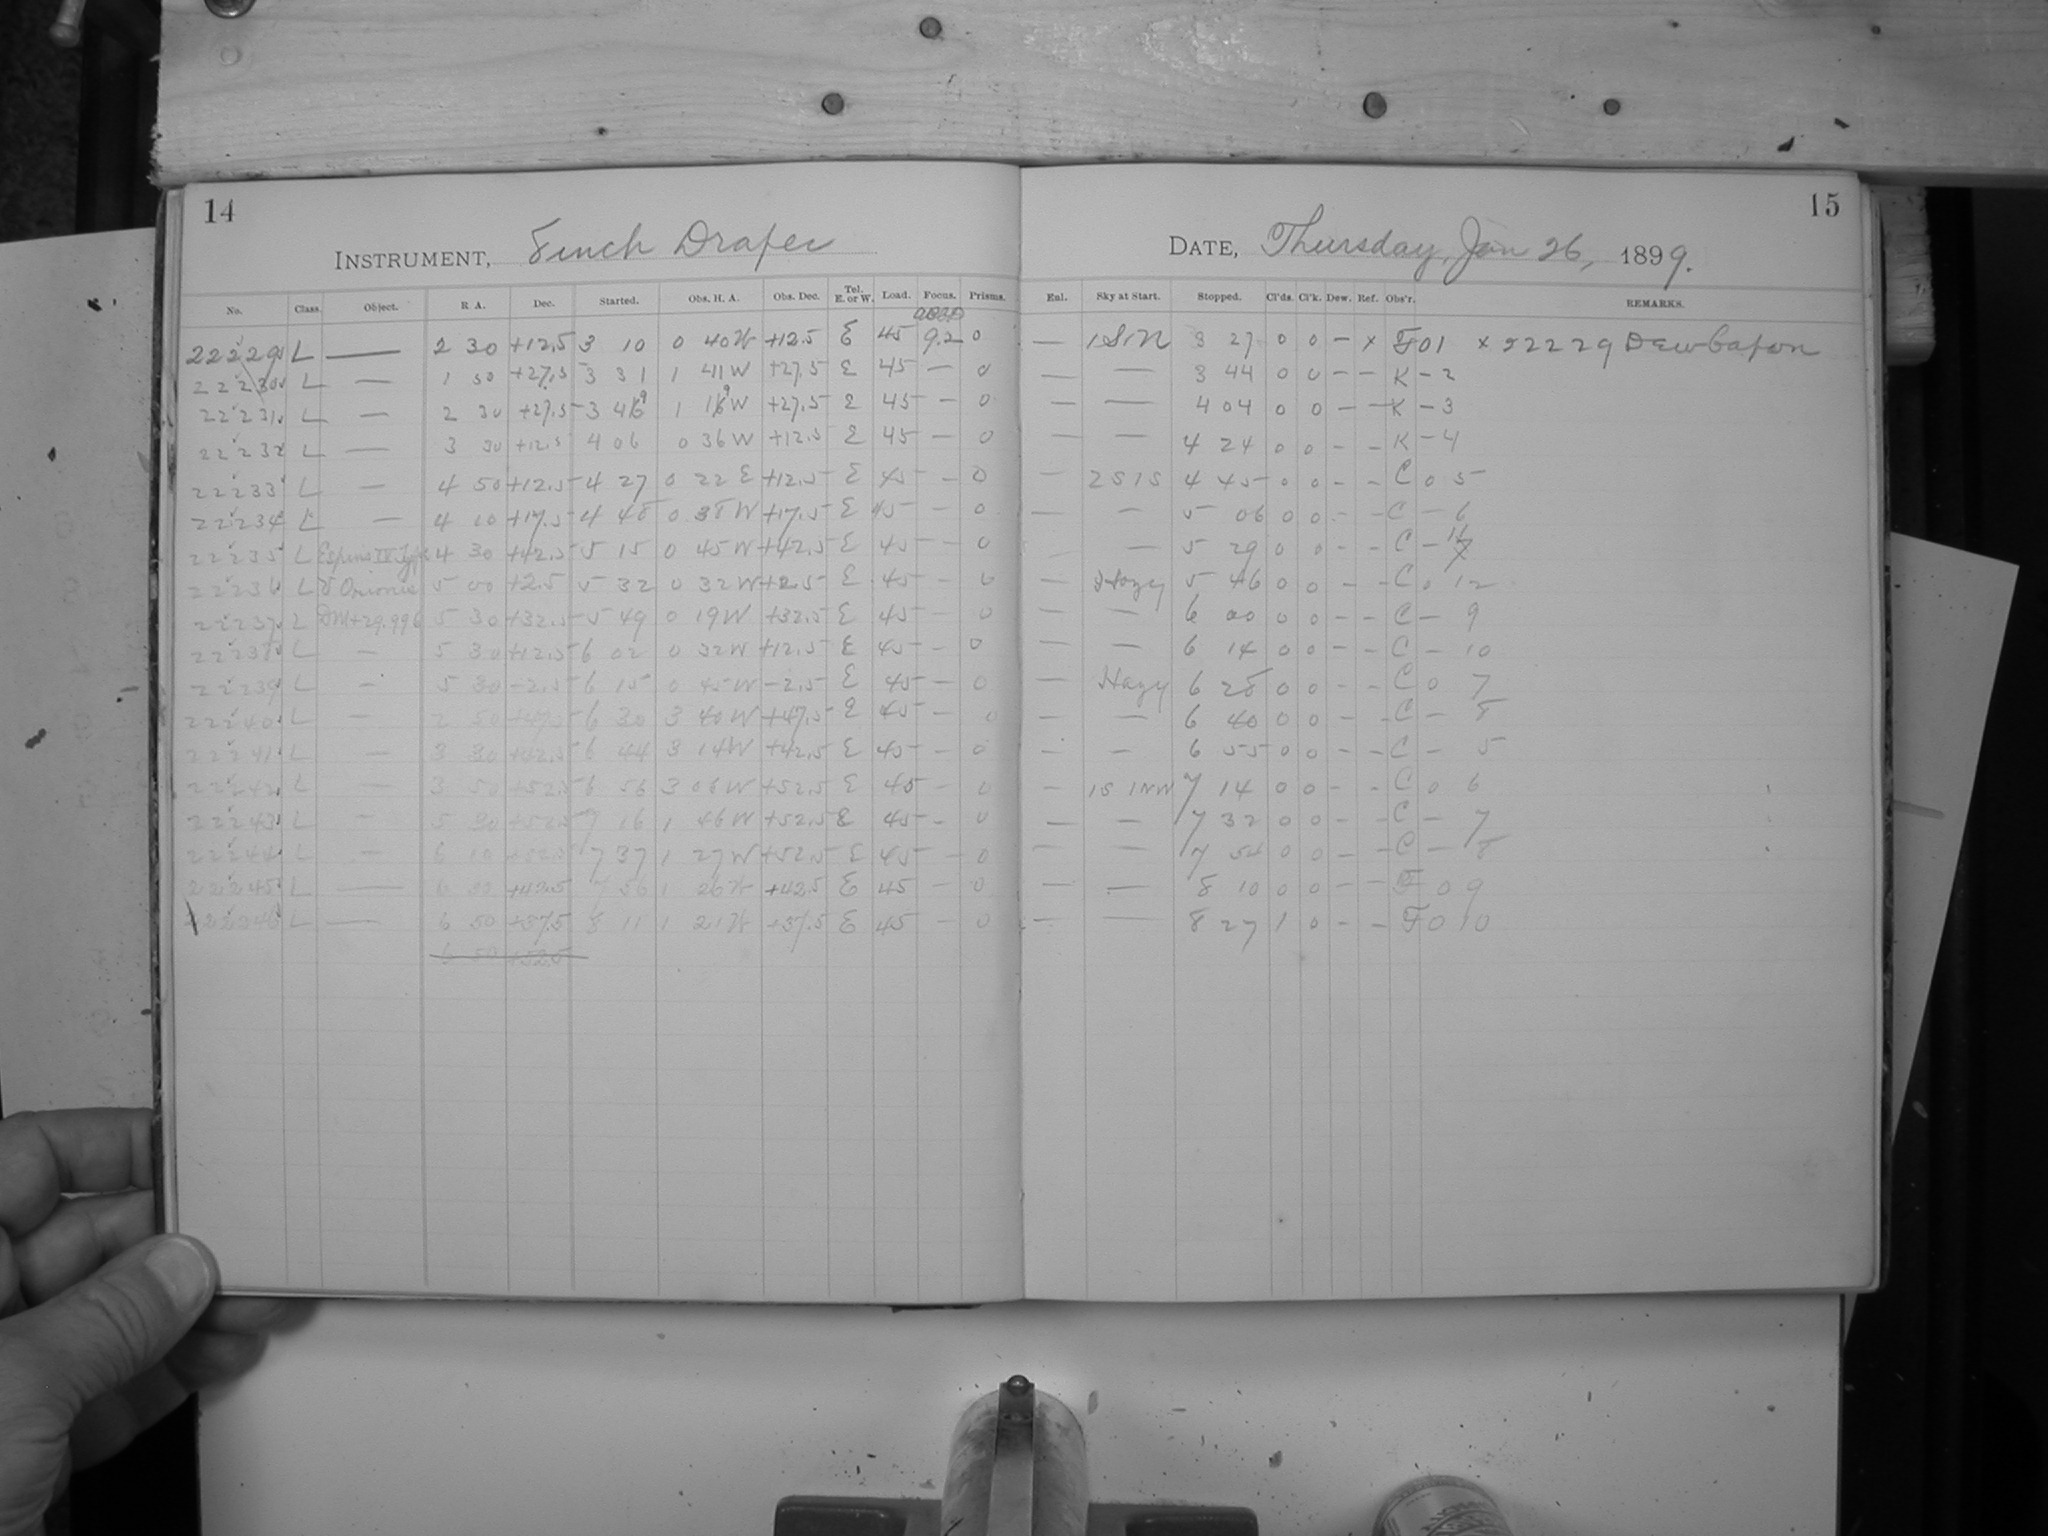 14
INSTRUMENT, 8 inch Draper
No. Class. Object. R A. Dec. Started. Obs. H. A. Obs. Dec. Tel. E. or W. Load. Focus. Prisms.
22229 L — 2 30 +12.5 3 10 0 40W +12.5 E 45 9.2 0
22230 L — 1 50 +27.5 3 31 1 41W +27.5 E 45 — 0
22231 L — 2 30 +27.5 3 49 1 19W +27.5 E 45 — 0
22232 L — 3 30 +12.5 4 06 0 36W +12.5 E 45 — 0
22233 L — 4 50 +12.5 4 27 0 22 E +12.5 E 45 — 0
22234 L — 4 10 +17.5 4 48 0 38W +17.5 E 45 — 0
22235 L Espins IV Type 4 30 +42.5 5 15 0 45W +42.5 E 45 — 0
22236 L Orionis 5 00 +2.5 5 32 0 32W +2.5 E 45 — 0
22237 L DM+29.996 5 30 +32.5 5 49 0 19W +32.5 E 45 — 0
22238 L — 5 30 +12.5 6 02 0 32W +12.5 E 45 — 0
22239 L — 5 30 -2.5 6 15 0 45W -2.5 E 45 — 0
22240 L — 2 50 +47.5 6 30 3 40W +47.5 E 45 — 0
22241 L — 3 30 6 44 3 14W +42.5 E 45 — 0
22242 L — 3 50 +52.5 6 56 3 06W +52.5 E 45 — 0
22243 L — 5 30 +52.5 7 16 1 46W +52.5 E 45 — 0
22244 L — 6 10 +52.5 7 37 1 27W +52.5 E 45 — 0
22245 L — 6 30 +42.5 7 56 1 26W +42.5 E 45 — 0
22246 L — 6 50 +37.5 8 11 1 21W +37.5 E 45 — 0
6 50 +52.5
15
DATE, Thursday, Jan 26, 1899.
Enl. Sky at Start. Stopped. Cl'ds. Cl'k. Dew. Ref. Obs'r. REMARKS.
— 1S1N 3 27 0 0 — x F01 x 22229 Dew Cap on
— — 3 44 0 0 — — K — 2
— — 4 04 0 0 — — K — 3
— — 4 24 0 0 — — K — 4
— 2S1S 4 45 0 0 — — C 0 5
— — 5 06 0 0 — — C — 6
— 5 29 0 0 — — C — 11
— Hazy 5 46 0 0 — — C 0 12
— — 6 00 0 0 — — C — 9
— — 6 14 0 0 — — C — 10
— Hazy 6 28 0 0 — — C 0 7
— — 6 40 0 0 — — C — 8
— — 6 55 0 0 — — C — 5
— 1S 1NW 7 14 0 0 — — C 0 6
— — 7 32 0 0 — — C — 7
— — 7 54 0 0 — — C — 8
— — 8 10 0 0 — — F 0 9
— — 8 27 1 0 — — F 0 10